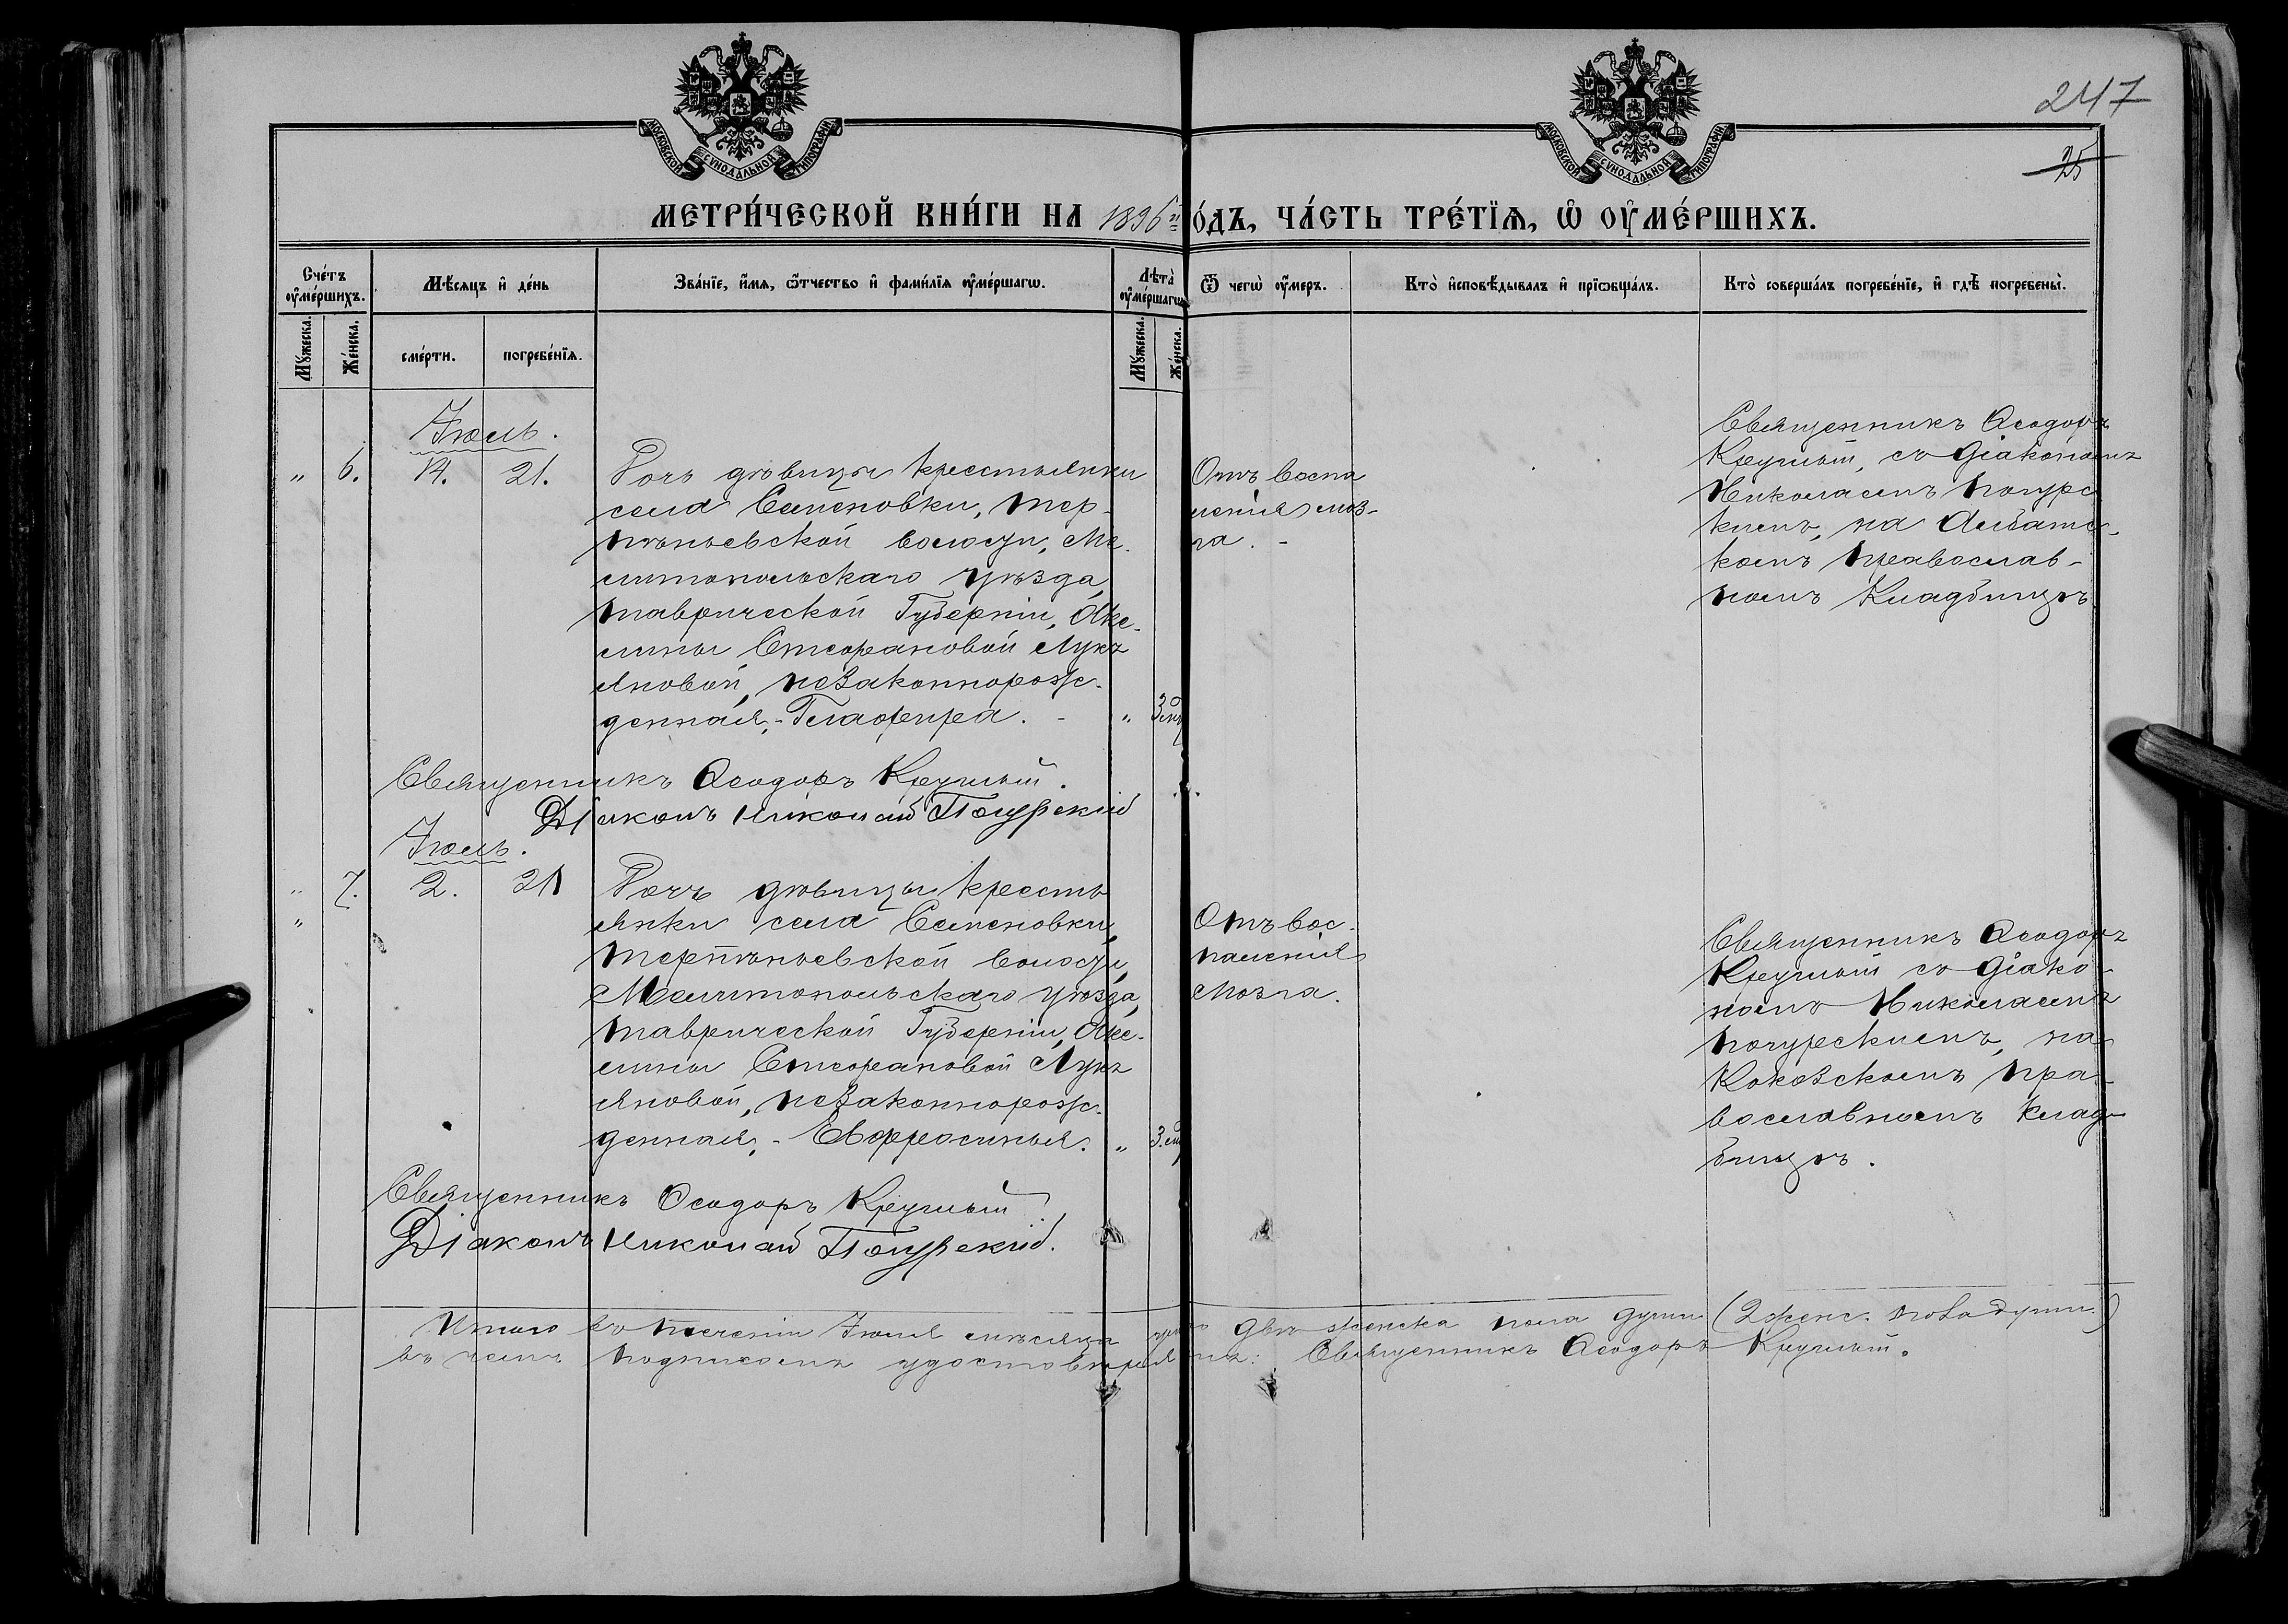 247
25
МОСКОВСКОЙ СУНОДАЛЬНОЙ ТИПОГРАФІИ
МОСКОВСКОЙ СУНОДАЛЬНОЙ ТИПОГРАФІИ
МЕТРИ́ЧЕСКОЙ КНИ́ГИ НА 1896й О́ДЪ, ЧА́СТЬ ТРЕ́ТЇѦ, Ѡ҆ ОУ҆МЕ́РШИХЪ.
Сче́тъ оу҆ме́ршихъ.
Мꙋ́жеска.
Же́нска.
Мѣ́сяцъ и҆ де́нь
сме́рти.
погребе́нїѧ.
Зва́нїе, и҆́мѧ, ѻ҆́тчество и҆ фами́лїѧ оу҆ме́ршагѡ.
Лѣ́та оу҆ме́ршагѡ
Мꙋ́жеска.
Же́нска.
Ѿ чегѡ̀ оу҆́меръ.
Кто̀ и҆сповѣ́дывалъ и҆ прїѡбща́лъ.
Кто̀ соверша́лъ погребе́нїе, и҆ гдѣ̀ погребены̀.
Іюль.
„ 6. 14. 21. Дочь дѣвицы крестьянки
села Семеновки, Тер-
пѣньевской волости, Ме-
литопольскаго уѣзда,
Таврической Губерніи, Аке-
лины Стефановой Лукъ
яновой, незаконнорож-
денная, - Глафира. - „
Отъ воспа
ленія моз-
га. -
Священникъ Ѳеодоръ
Круглый, со діакономъ
Николаемъ
на
комъ православ-
номъ Кладбищѣ.
Священникъ Ѳеодоръ Круглый.
Діаконъ Николай
Іюль.
„ 7. 2. 21 Дочь дѣвицы кресть
„ янки села Семеновки,
Терпѣньевской волости,
Мелитопольскаго уѣзда,
Таврической Губерніи, Аке-
лины Стефановой Лукъ
яновой, незаконнорож-
денная, - Евфросинья. „
Отъ вос-
паленія
мозга.
Священникъ Ѳеодоръ
Круглый со діако-
номъ Николаемъ
на
Кокозскомъ пра-
вославномъ клад-
бищѣ.
Священникъ Ѳеодоръ Круглый.
Діаконъ Николай
Итого въ теченіи Іюля мѣсяца двѣ женска пола души (2 женс. пола души.)
въ чемъ подписомъ удостовѣряемъ: Священникъ Ѳеодоръ Круглый.